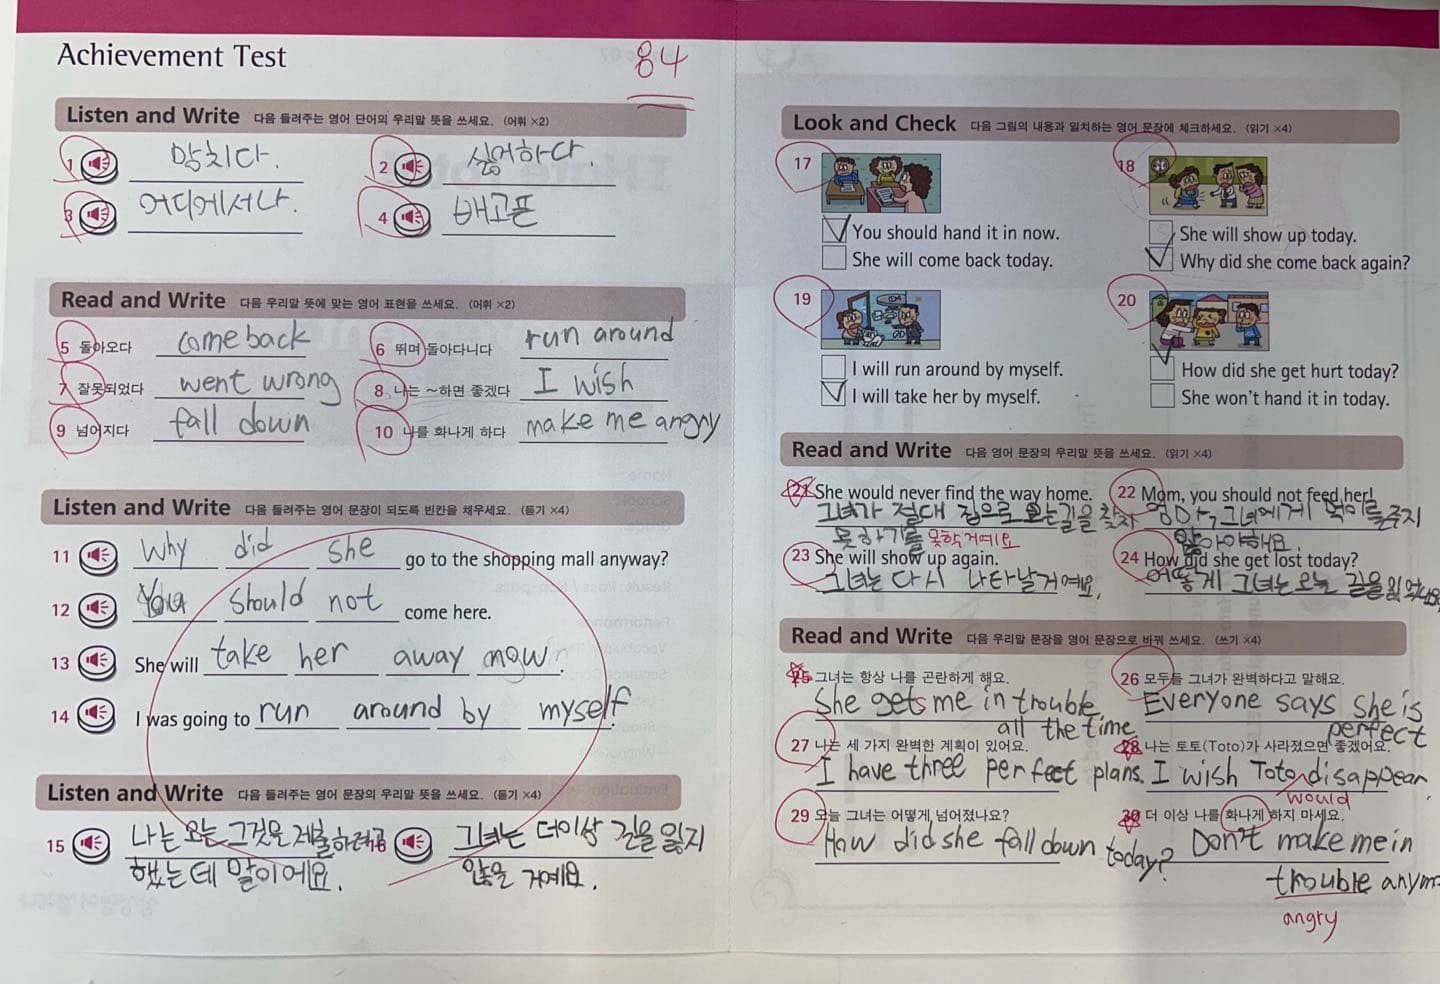 Achievement Test
84
Listen and Write 다음 들려주는 영어 단어의 우리말 뜻을 쓰세요. (어휘 ×2)
1 망치다.
2 싫어하다.
3 어디에서나.
4 배고픈
Read and Write 다음 우리말 뜻에 맞는 영어 표현을 쓰세요. (어휘 ×2)
5 돌아오다 come back
6 뛰며 돌아다니다 run around
7 잘못되었다 went wrong
8 나는 ~하면 좋겠다 I wish
9 넘어지다 fall down
10 나를 화나게 하다 make me angry
Listen and Write 다음 들려주는 영어 문장이 되도록 빈칸을 채우세요. (듣기 ×4)
11 Why did she go to the shopping mall anyway?
12 You should not come here.
13 She will take her away now.
14 I was going to run around by myself.
Listen and Write 다음 들려주는 영어 문장의 우리말 뜻을 쓰세요. (듣기 ×4)
15 나는 오늘 그것을 제출하려고
했는데 말이에요.
16 그녀는 더이상 길을 잃지
않을 거예요.
Look and Check 다음 그림의 내용과 일치하는 영어 문장에 체크하세요. (읽기 ×4)
17
You should hand it in now.
She will come back today.
18
She will show up today.
Why did she come back again?
19
I will run around by myself.
I will take her by myself.
20
How did she get hurt today?
She won't hand it in today.
Read and Write 다음 영어 문장의 우리말 뜻을 쓰세요. (읽기 ×4)
21 She would never find the way home.
그녀가 절대 집으로 오는길을 찾지
못하기를 못할거예요
22 Mom, you should not feed her!
엄마, 그녀에게 먹이를 주지
않아야해요.
23 She will show up again.
그녀는 다시 나타날거예요.
24 How did she get lost today?
어떻게 그녀는 오늘 길을
Read and Write 다음 우리말 문장을 영어 문장으로 바꿔 쓰세요. (쓰기 ×4)
25 그녀는 항상 나를 곤란하게 해요.
She gets me in trouble
all the time.
26 모두들 그녀가 완벽하다고 말해요.
Everyone says she is
perfect
27 나는 세 가지 완벽한 계획이 있어요.
I have three perfect plans.
28 나는 토토(Toto)가 사라졌으면 좋겠어요.
I wish Toto disappear.
would
29 오늘 그녀는 어떻게 넘어졌나요?
How did she fall down today?
30 더 이상 나를 화나게 하지 마세요.
Don't make me in
trouble anym
angry